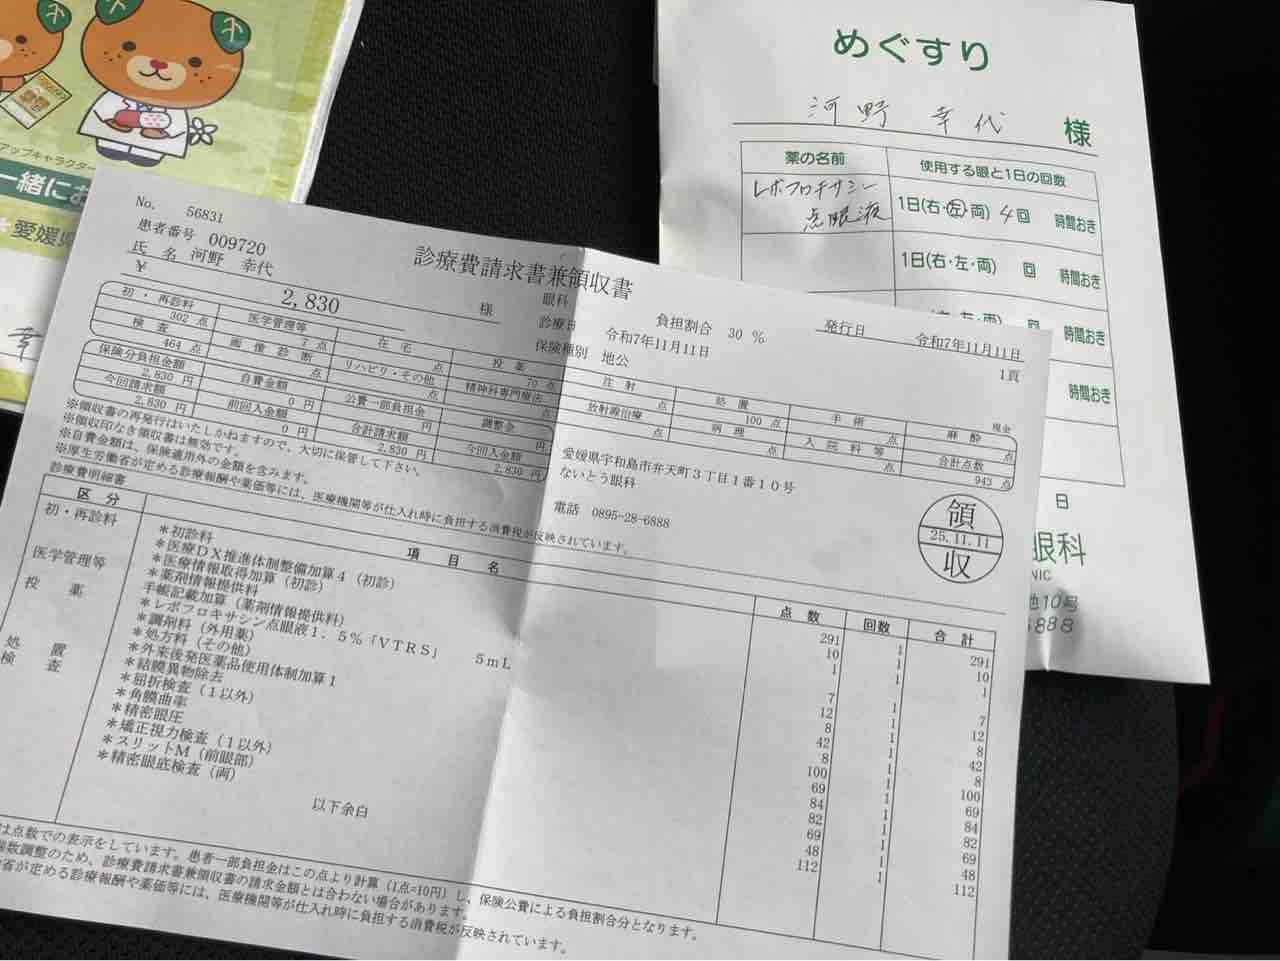 アップキャラクター
一緒に
愛媛県
幸
めぐすり
河野 幸代 様
薬の名前 使用する眼と1日の回数
レボフロキサシン
点眼液
1日(右・左・両) 4回 時間おき
1日(右・左・両) 回 時間おき
時間おき
時間おき
日
眼科
NIC
地10号
8888
No. 56831
患者番号 009720
氏 名 河野 幸代 様
¥ 2,830
診療費請求書兼領収書
眼科
負担割合 30 %
発行日 令和7年11月11日
令和7年11月11日
保険種別 地公
1頁
現金
初・再診料 医学管理等 在宅 投薬 注射 処置 手術 麻酔
302 点 7 点 点 70 点 点 100 点 点 点
検査 画像診断 リハビリ・その他 精神科専門療法 放射線治療 病理 入院料等 合計点数
464 点 点 点 点 点 点 点 943 点
保険分負担金額 自費金額 公費一部負担金 調整金
2,830 円 0 円 円 円
今回請求額 前回入金額 合計請求額 今回入金額
2,830 円 0 円 2,830 円 2,830 円
※領収書の再発行はいたしかねますので、大切に保管して下さい。
※領収印なき領収書は無効です。
※自費金額は、保険適用外の金額を含みます。
※厚生労働省が定める診療報酬や薬価等には、医療機関等が仕入れ時に負担する消費税が反映されています。
愛媛県宇和島市弁天町3丁目1番10号
ないとう眼科
電話 0895-28-6888
領
25.11.11
収
診療費明細書
区分 項目名 点数 回数 合計
初・再診料 *初診料 291 1 291
*医療DX推進体制整備加算4(初診) 10 1 10
*医療情報取得加算(初診) 1 1 1
医学管理等 *薬剤情報提供料
手帳記載加算(薬剤情報提供料) 7 1 7
投薬 *レボフロキサシン点眼液1.5%「VTRS」 5mL 12 1 12
*調剤料(外用薬) 8 1 8
*処方料(その他) 42 1 42
*外来後発医薬品使用体制加算1 8 1 8
処置 *結膜異物除去 100 1 100
検査 *屈折検査(1以外) 69 1 69
*角膜曲率 84 1 84
*精密眼圧 82 1 82
*矯正視力検査(1以外) 69 1 69
*スリットM(前眼部) 48 1 48
*精密眼底検査(両) 112 1 112
以下余白
は点数での表示をしています。患者一部負担金はこの点より計算(1点=10円)し、保険公費による負担割合分となります。
数調整のため、診療費請求書兼領収書の請求金額とは合わない場合があります。
省が定める診療報酬や薬価等には、医療機関等が仕入れ時に負担する消費税が反映されています。